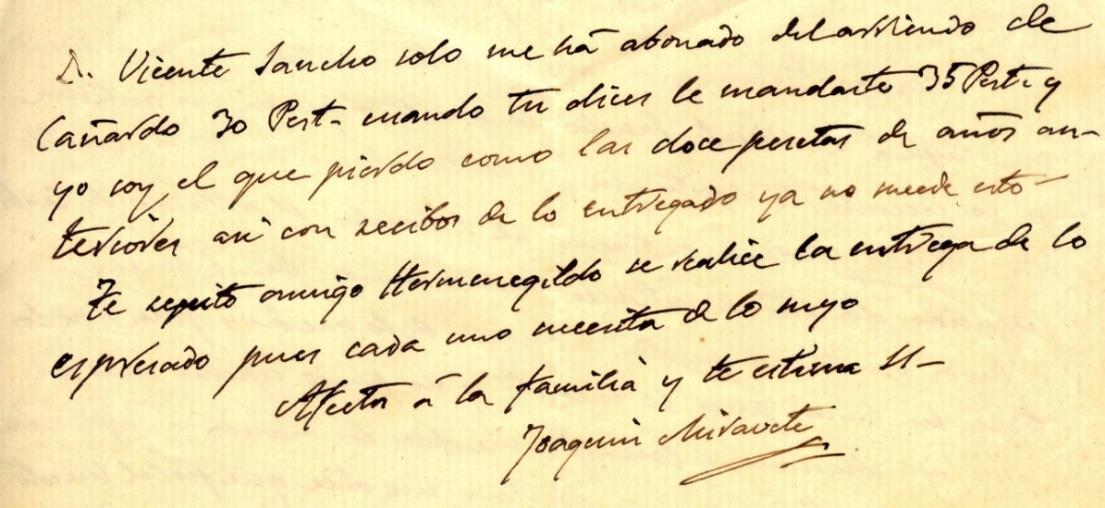 D. Vicente Sancho solo me há abonado del arriendo de
Cañardo 30 Pest. cuando tu dices le mandaste 35 Pest. y
yo soy el que pierdo como las doce pesetas de años an-
teriores asi con recibos de lo entregado ya no sucede esto
Te repito amigo Hermenegildo se realice la entrega de lo
espresado pues cada uno necesita de lo suyo
Afectos á la familia y te estima
Joaquin Miravete